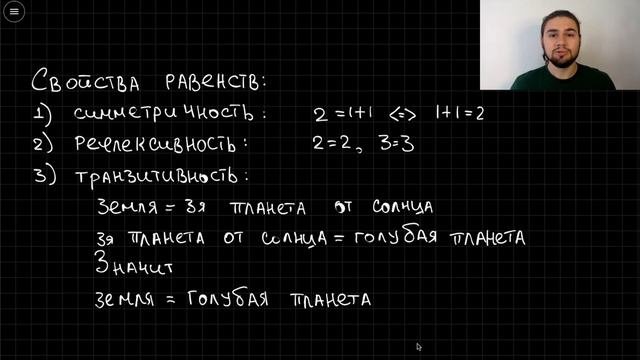 Свойства равенств:
1) симметричность: 2=1+1 <=> 1+1=2
2) рефлексивность: 2=2, 3=3
3) транзитивность:
Земля = 3я планета от солнца
3я планета от солнца = голубая планета
Значит
Земля = голубая планета